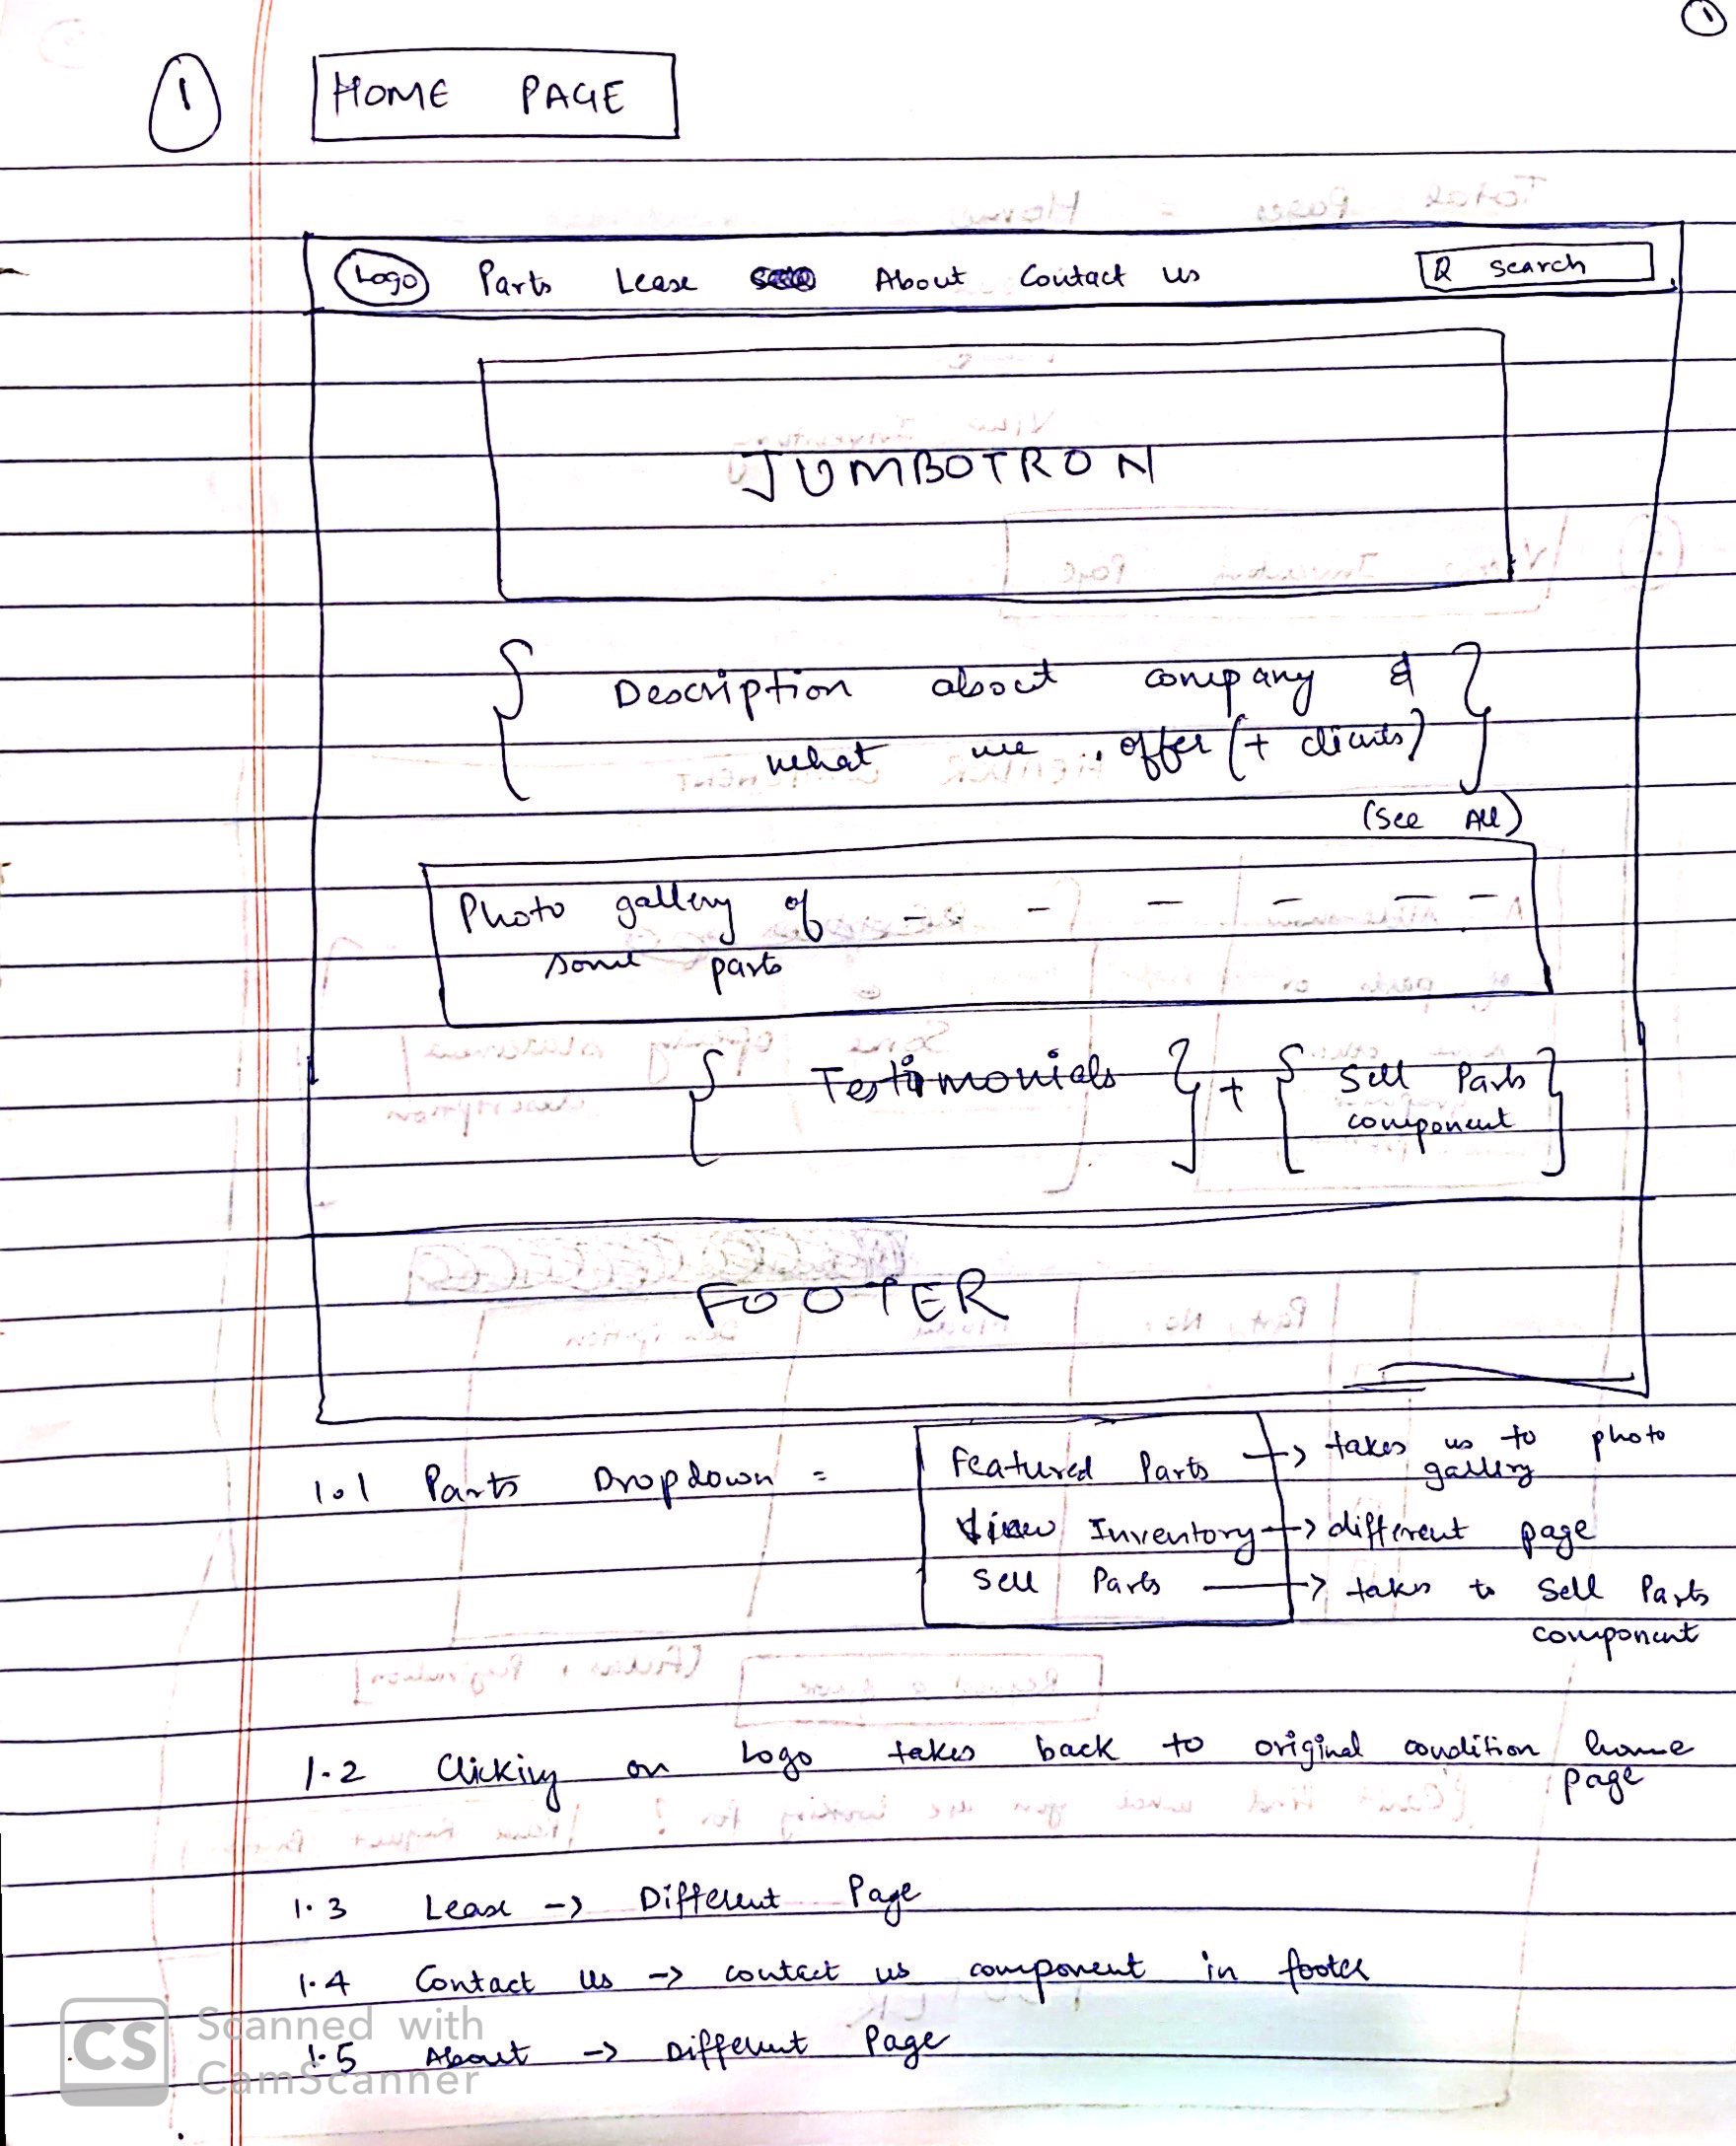 1
1
HOME PAGE
Logo Parts Lease About Contact us Search
JUMBOTRON
Description about company &
what we offer (+ clients)
(See All)
Photo gallery of - - - - - -
some parts
{ Testimonials } + { Sell Parts
component }
FOOTER
1.1 Parts Dropdown = Featured Parts -> takes us to photo
gallery
View Inventory -> different page
Sell Parts -> takes to Sell Parts
component
1.2 Clicking on Logo takes back to original condition home
page
1.3 Lease -> Different Page
1.4 Contact us -> contact us component in footer
1.5 About -> Different Page
CS Scanned with
CamScanner